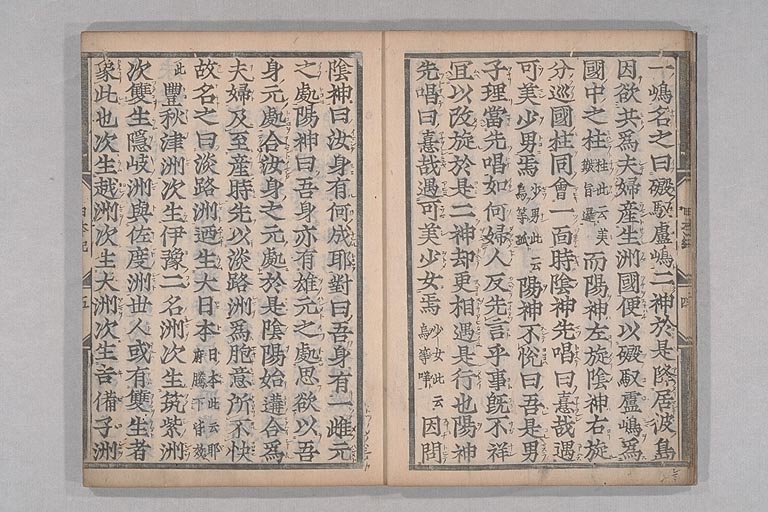 一嶋名之曰磤馭盧嶋二神於是降居彼島
因欲共爲夫婦産生洲國便以磤馭盧嶋爲
國中之柱柱此云美簸旨邏而陽神左旋陰神右旋
分巡國柱同會一面時陰神先唱曰憙哉遇
可美少男焉少男此云烏等孤陽神不悅曰吾是男
子理當先唱如何婦人反先言乎事既不祥
宜以改旋於是二神却更相遇是行也陽神
先唱曰憙哉遇可美少女焉少女此云烏等咩因問
陰神曰汝身有何成耶對曰吾身有一雌元
之處陽神曰吾身亦有雄元之處思欲以吾
身元處合汝身之元處於是陰陽始遘合爲
夫婦及至産時先以淡路洲爲胞意所不快
故名之曰淡路洲廼生大日本日本此云耶麻騰下皆效
此豐秋津洲次生伊豫二名洲次生筑紫洲
次雙生隱岐洲與佐度洲世人或有雙生者
象此也次生越洲次生大洲次生吉備子洲
日本紀 四
日本紀 五